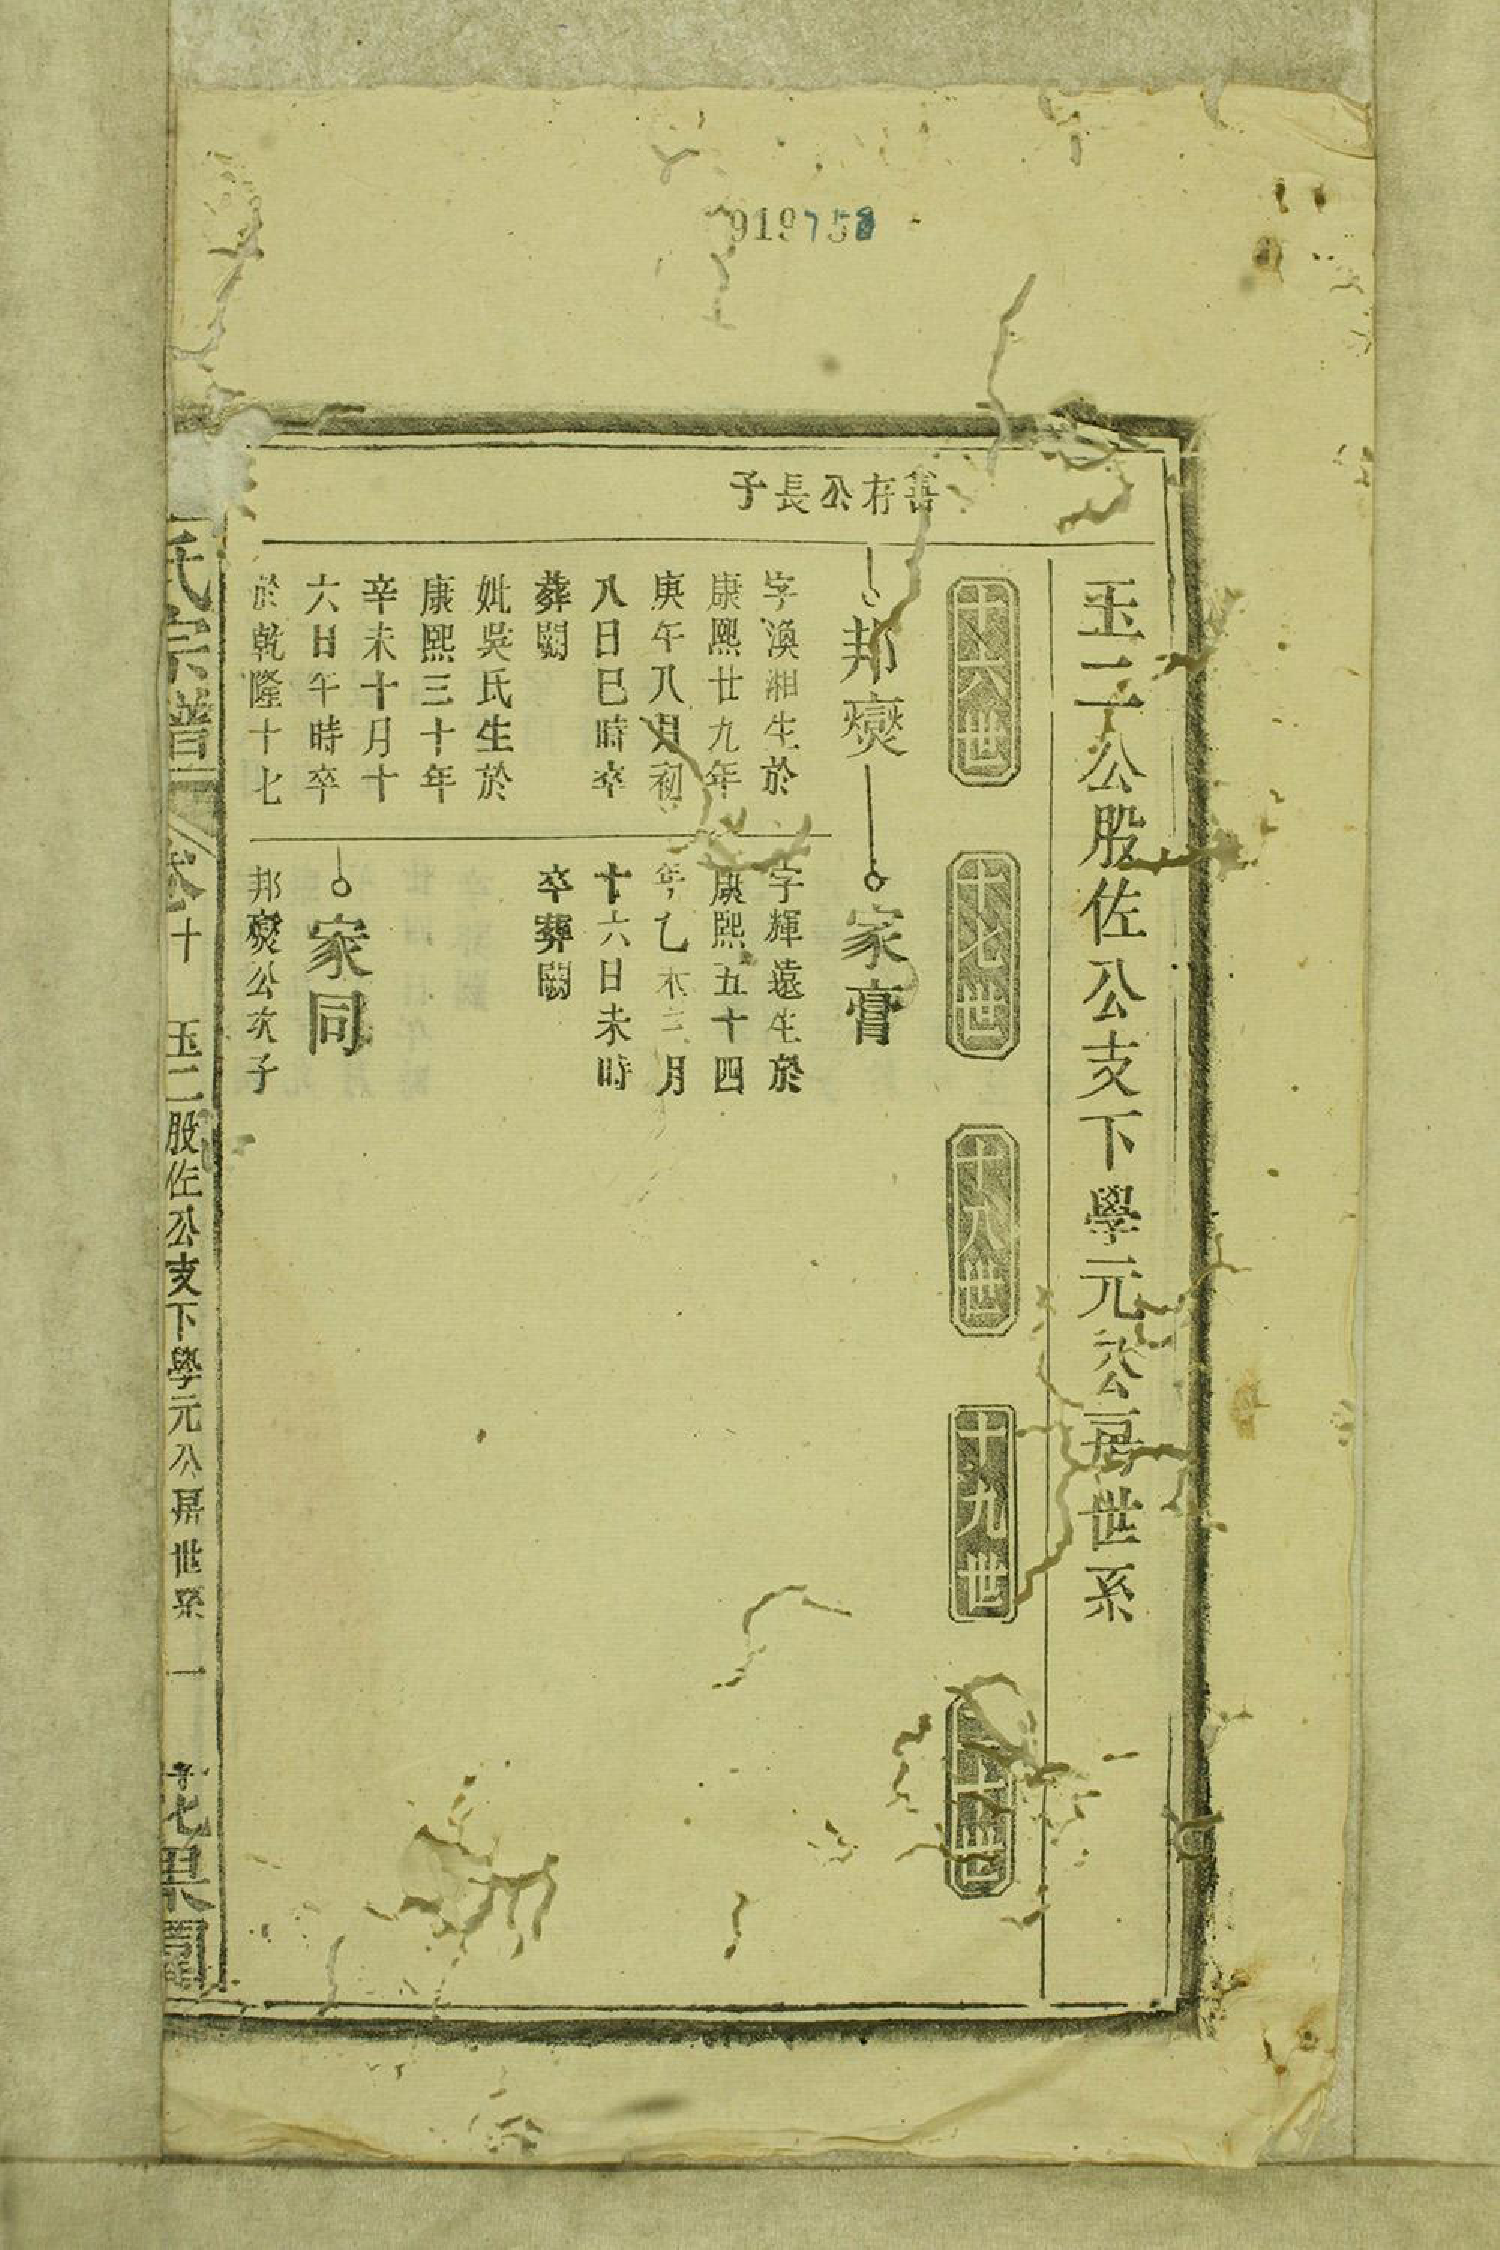 919758
玉二公股佐公支下學元公房世系
十六世
十七世
十八世
十九世
二十世
善存公長子
邦爕
字渙湘生於
康熙廿九年
庚午八月初
八日巳時卒
葬闕
妣吳氏生於
康熙三十年
辛未十月十
六日午時卒
於乾隆十七
家膏
字輝遠生於
康熙五十四
年乙未三月
十六日未時
卒葬闕
家同
邦爕公次子
氏宗譜
卷十
玉二股佐公支下學元公房世系
一
花果園